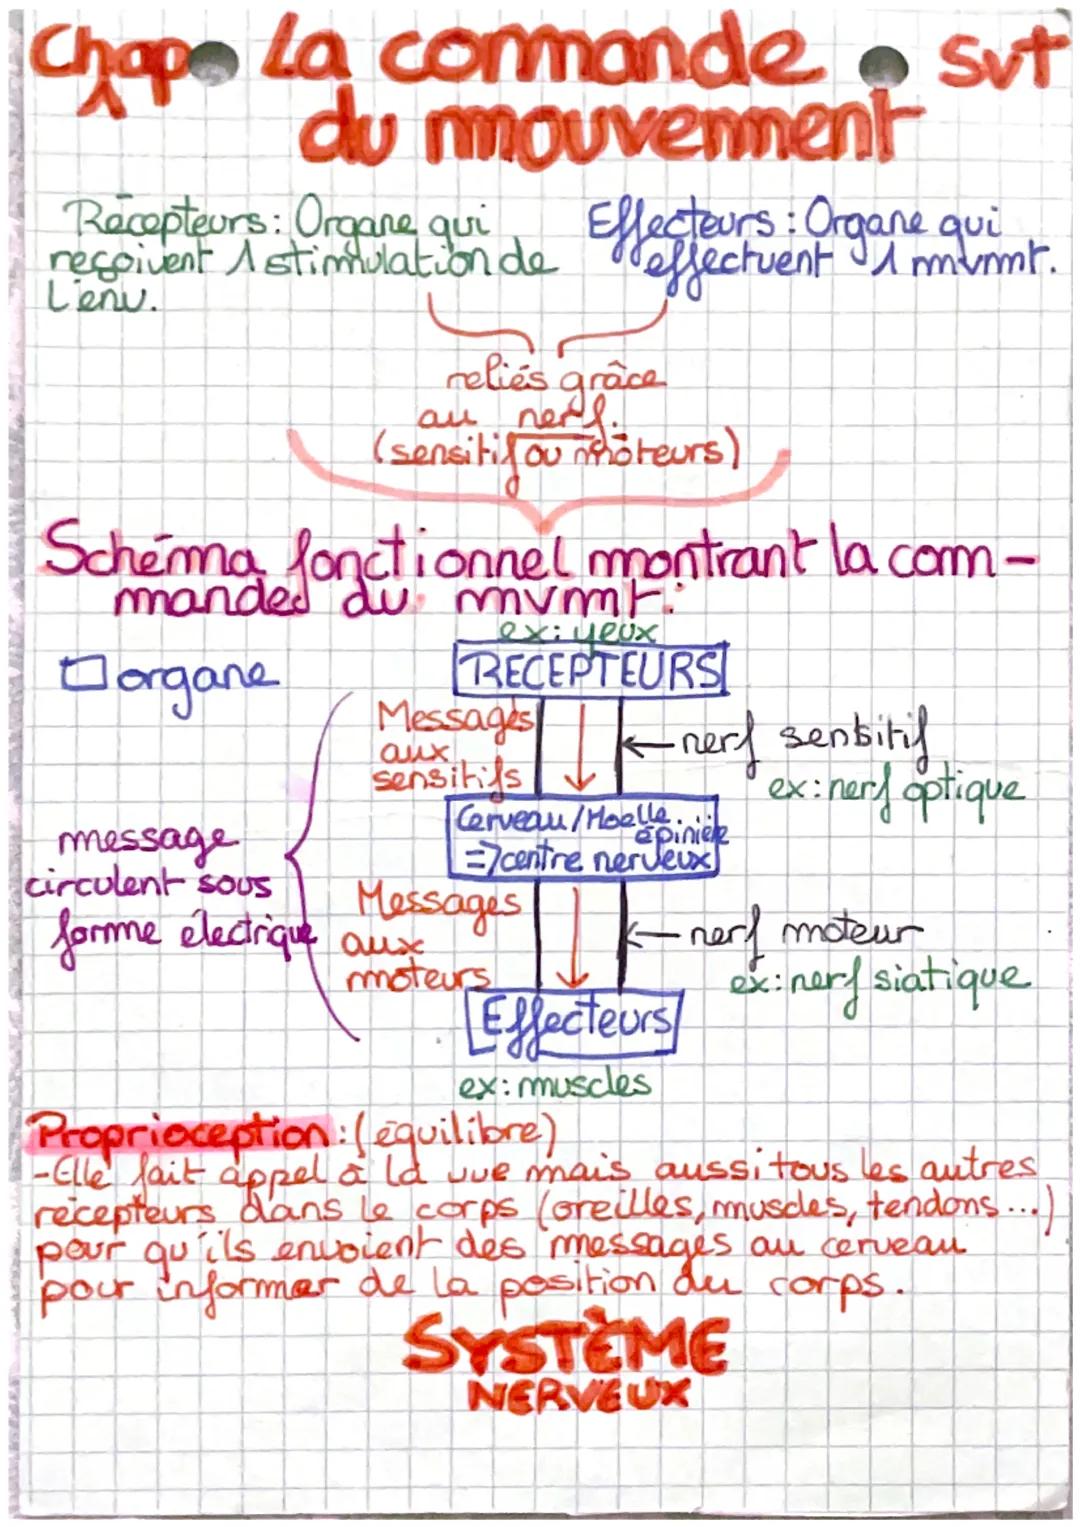 Chap 1 La commande SVT
du mouvement
Récepteurs : Organe qui
reçoivent 1 stimulation de
l'env.
Effecteurs : Organe qui
effectuent 1 mvmnt.
reliés grâce
au nerf.
(sensitif ou moteurs)
Schéma fonctionnel montrant la com-
mandes du mvmt :
ex: yeux
organe
RECEPTEURS
Messages
aux
sensitifs
nerf sensitif
ex: nerf optique
Cerveau/Moelle
épinière
=> centre nerveux
message
circulent sous
forme électrique
Messages
aux
moteurs
nerf moteur
ex: nerf siatique
Effecteurs
ex: muscles
Proprioception : (équilibre)
- Elle fait appel à la vue mais aussi tous les autres
récepteurs dans le corps (oreilles, muscles, tendons...)
pour qu'ils envoient des messages au cerveau
pour informer de la position du corps.
SYSTÈME
NERVEUX